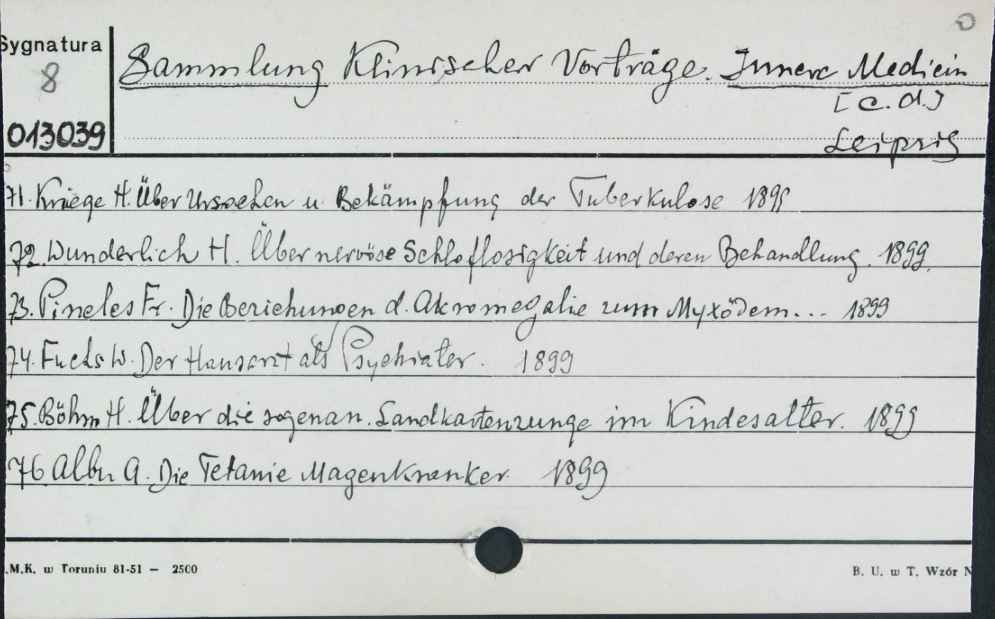 Sygnatura
8
013039
Sammlung Klinischer Vorträge. Innere Medicin
[c.d.]
Leipzig
71. Kriege H. Über Ursachen u. Bekämpfung der Tuberkulose 1899
72. Wunderlich H. Über nervöse Schloflosigkeit und deren Behandlung. 1899.
73. Pineles Fr. Die Beziehungen d. Akromegalie zum Myxödem... 1899
74. Fuchs W. Der Hausarzt als Psychiater. 1899
75. Böhm H. Über die sogenan. Landkartenzunge im Kindesalter. 1899
76 Albu A. Die Tetanie Magenkranker. 1899
.M.K. w Toruniu 81-51 — 2500
B. U. w T. Wzór N